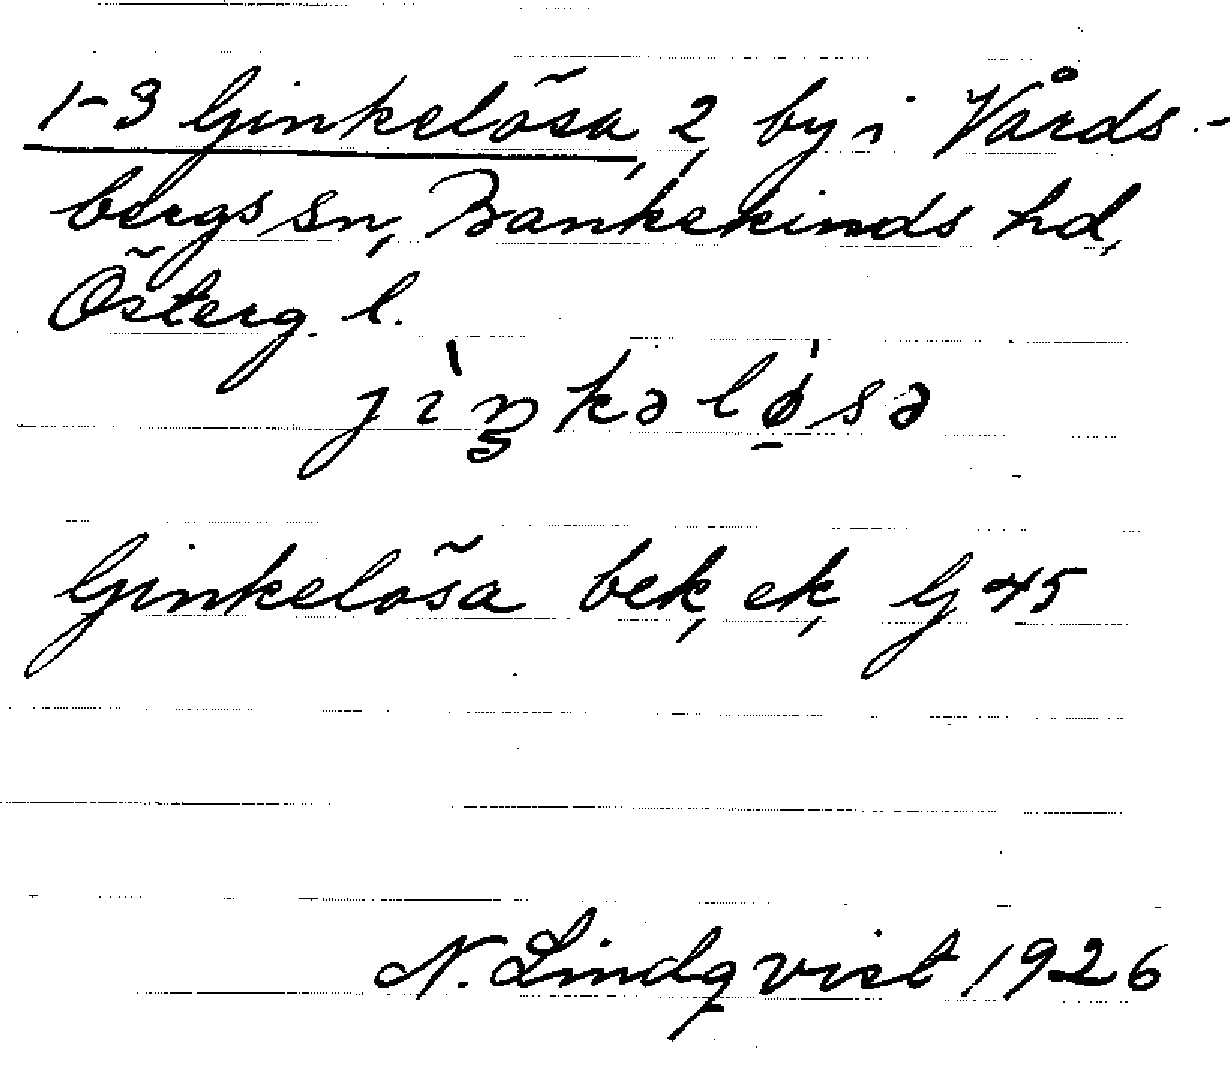 1-3 Ginkelösa, 2, by i Vårds-
bergs sn, Bankekinds hd,
Österg. l.
jìŋkəlø̱̍sə
Ginkelösa bek, ek, G 45
N. Lindqvist 1926